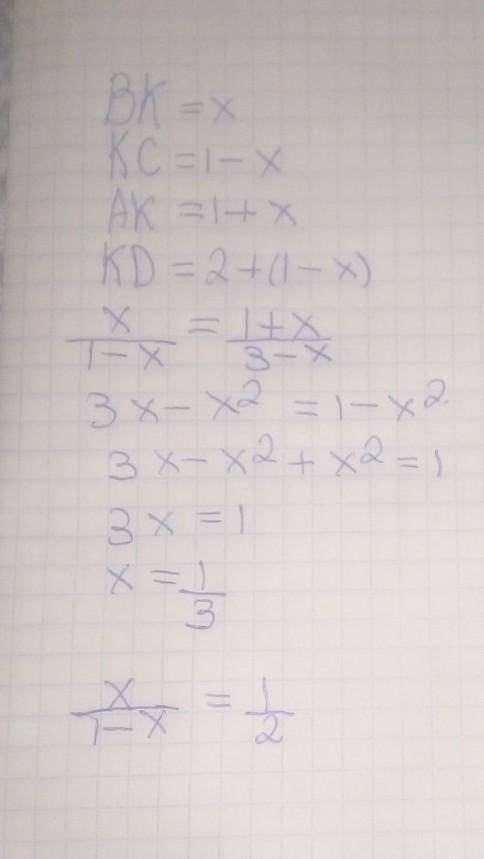 BK = x
KC = 1 - x
AK = 1 + x
KD = 2 + (1 - x)
x/(1 - x) = (1 + x)/(3 - x)
3x - x² = 1 - x²
3x - x² + x² = 1
3x = 1
x = 1/3
x/(1 - x) = 1/2